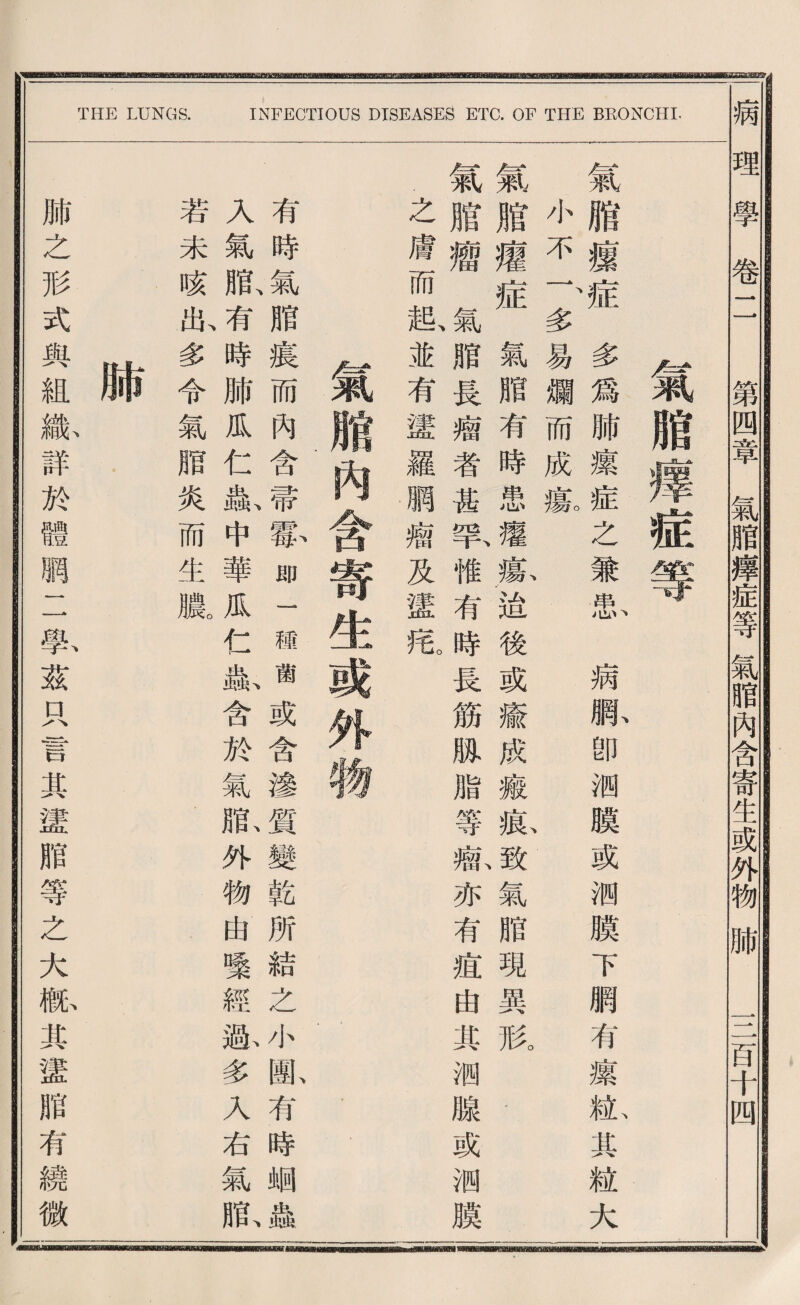 THE LUNGS. INFECTIOUS DISEASES ETC. OF THE BRONCHI.
病理學 卷二 第四章 氣脂瘴症等 氣脂內含寄生或外物 肺 三百十四
氣脂瘴症等
氣脂瘰症 多爲肺瘰症之兼患、 病膶、卽泗膜或泗膜下膶有瘰粒、其粒大
小不一、多易爛而成瘍。
氣脂癯症 氣脂有時患癯瘍、迨後或瘉成瘢痕、致氣脂現異形。
氣脂瘤 氣脂長瘤者甚罕、惟有時長筋脂等瘤、亦有疽由其泗腺或泗膜
之膚而起、並有羅膶瘤及。
氣脂內含寄生或外物
有時氣脂痕而內含帚霉、即一種菌或含滲質變乾所結之小團、有時蛔蟲
入氣脂、有時肺瓜仁蟲、中華瓜仁蟲、含於氣脂、外物由嗓經過、多入右氣脂、
若未咳出、多令氣脂炎而生膿。
肺
肺之形式與組織、詳於體膶二學、茲只言其脂等之大概、其脂有繞微